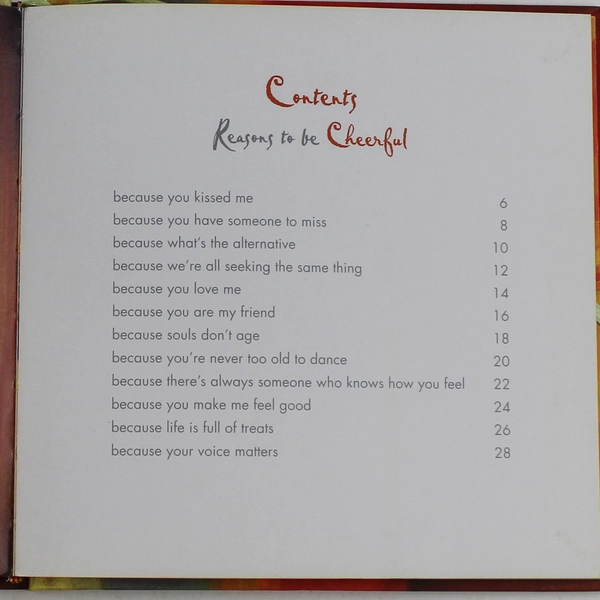 Contents
Reasons to be Cheerful
because you kissed me 6
because you have someone to miss 8
because what's the alternative 10
because we're all seeking the same thing 12
because you love me 14
because you are my friend 16
because souls don't age 18
because you're never too old to dance 20
because there's always someone who knows how you feel 22
because you make me feel good 24
because life is full of treats 26
because your voice matters 28